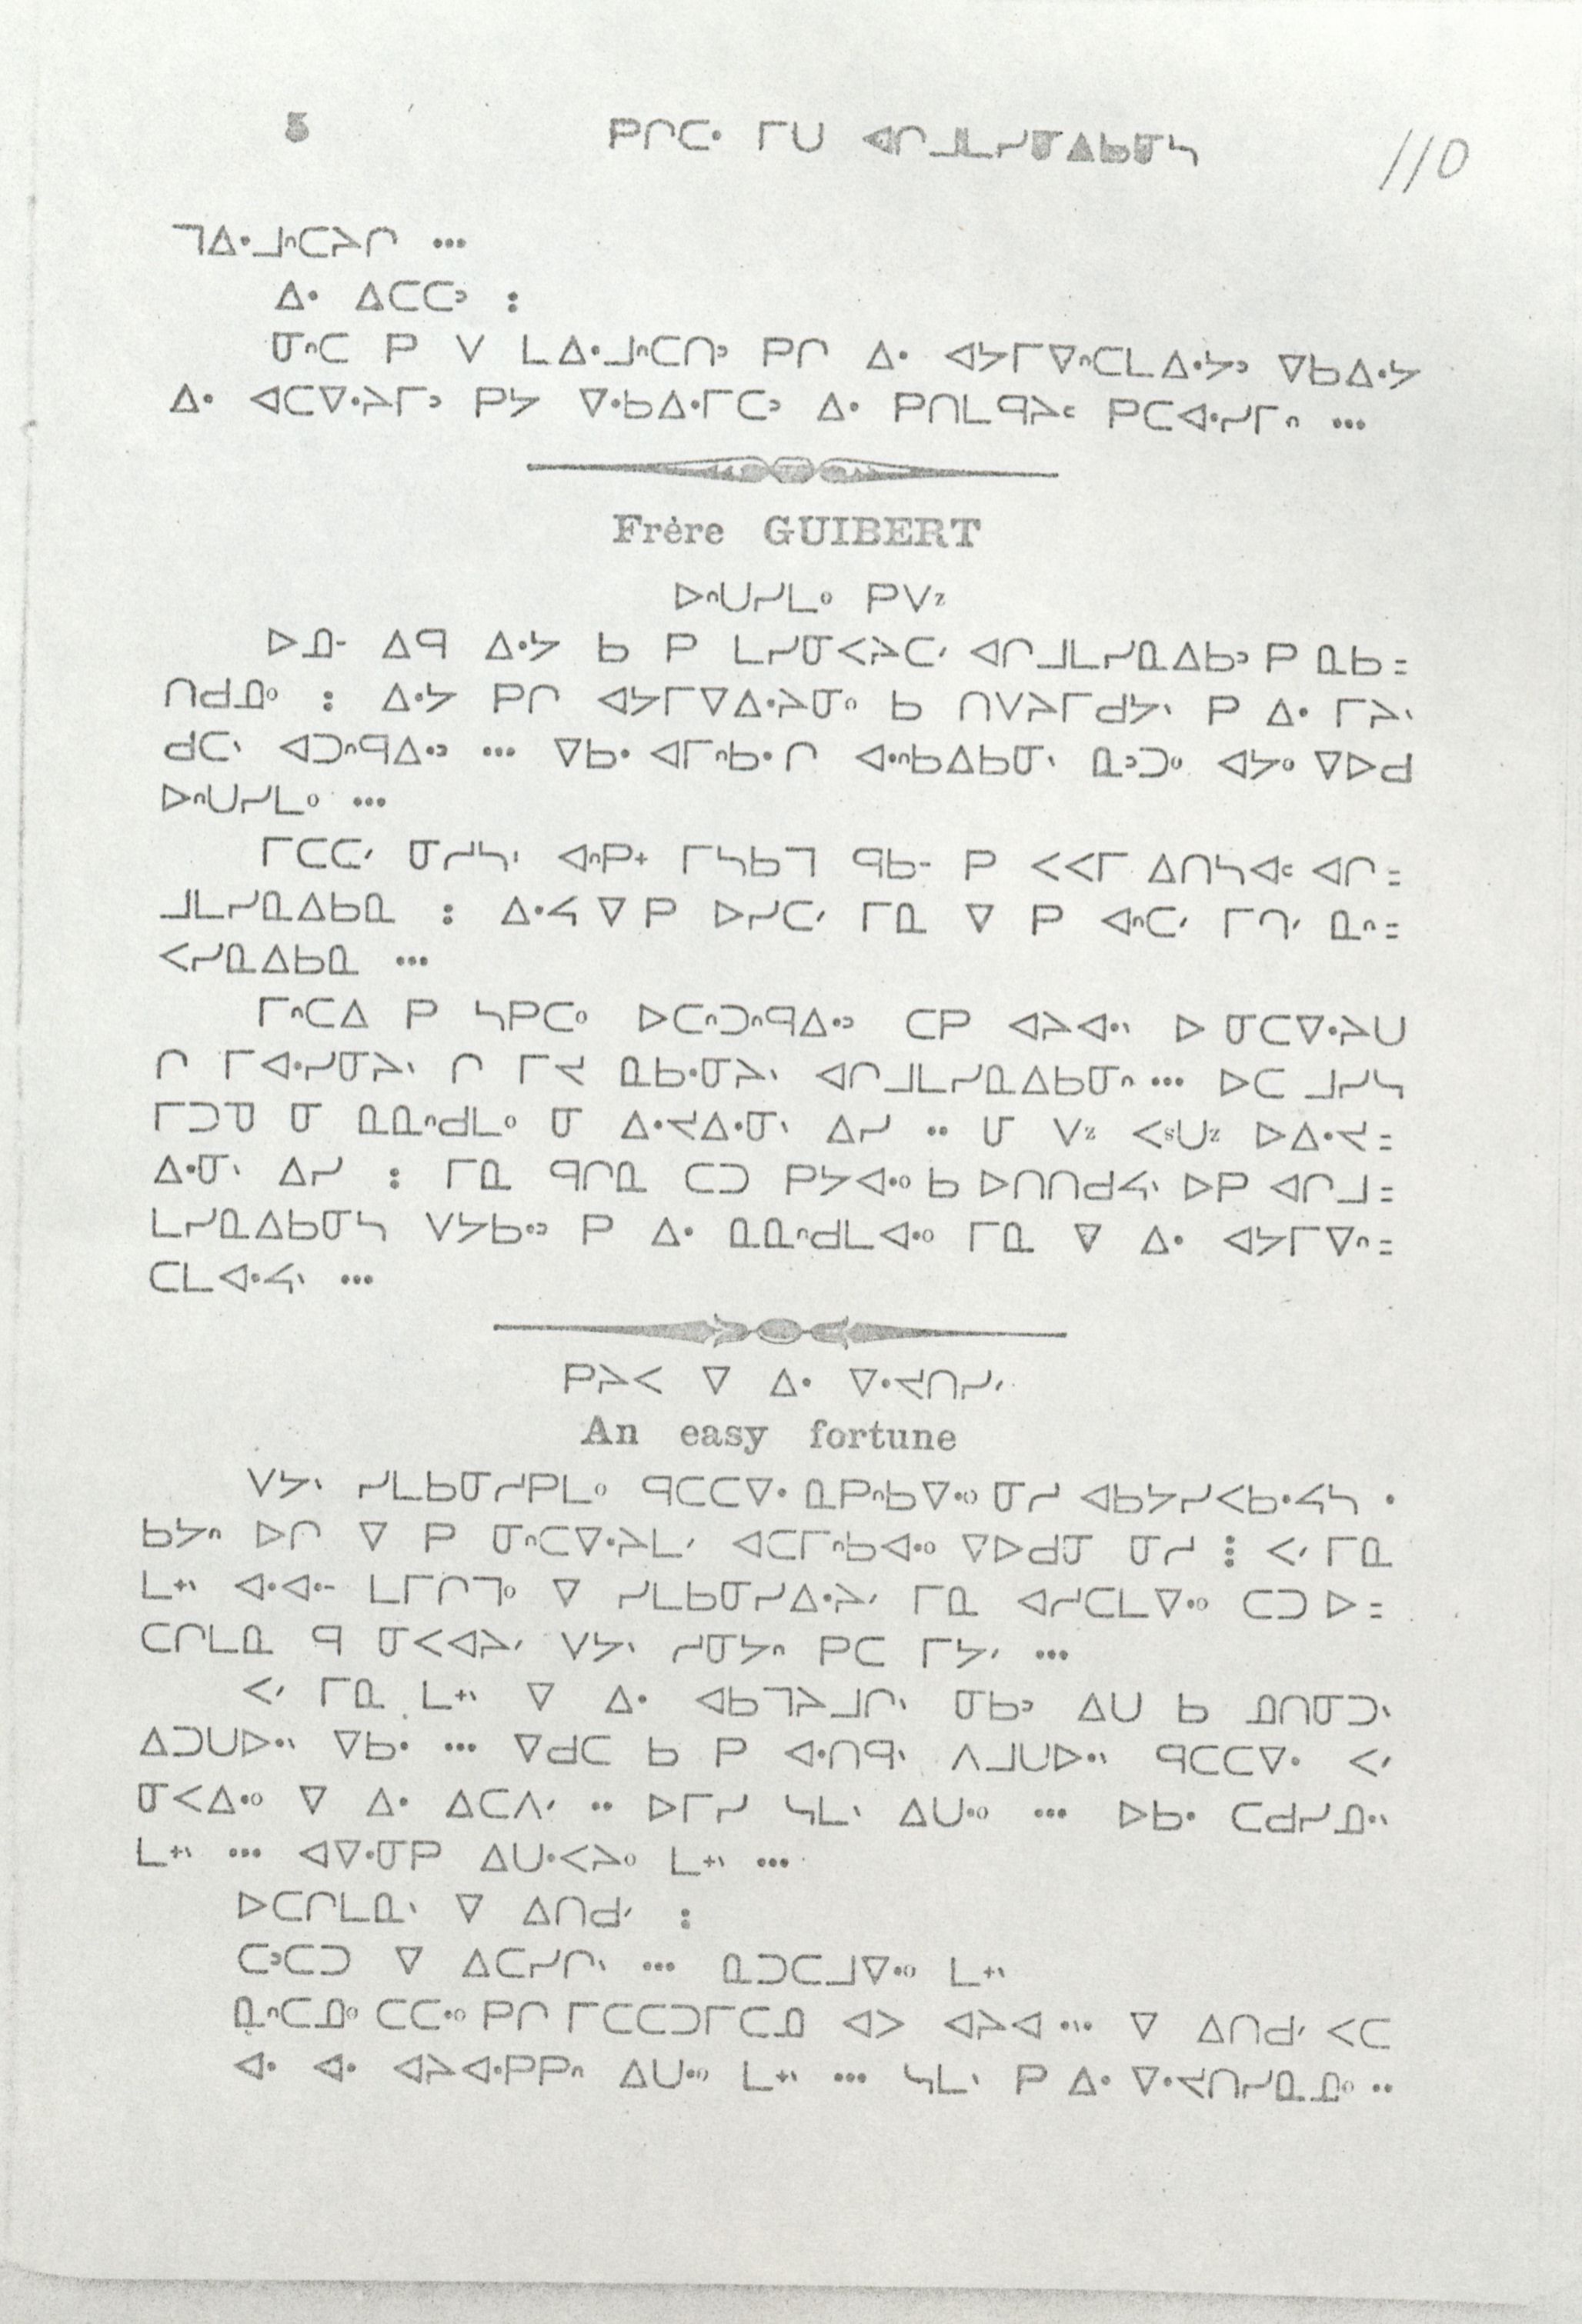 5 ᑭᒋᑕᐧ ᒥᑌ ᐊᒋᒧᒪᓯᓇᐃᑲᓂᓴ 110
ᒣᐃᐧᒧᐢᑕᔨᒋ ...
ᐃᐧ ᐃᑕᑕᐣ :
ᓂᐢᑕ ᑭ ᐯ ᒪᐃᐧᒧᐢᑕᑎᐣ ᑭᒋ ᐃᐧ ᐊᔭᒥᐁᐢᑕᒪᐃᐧᔭᐣ ᐁᑲᐃᐧᔭ
ᐃᐧ ᐊᑕᐁᐧᔨᒥᐣ ᑭᔭ ᐁᐧᑲᐃᐧᒥᑕᐣ ᐃᐧ ᑭᑎᒪᑫᔨᑦ ᑭᑕᐊᐧᓯᒥᐢ ...
Frère GUIBERT
ᐅᐢᑌᓯᒪᐤ ᑭᐯᶻ
ᐅᓄᐨ ᐃᑫ ᐃᐧᔭ ᑲ ᑭ ᒪᓯᓂᐸᔨᑕᐟ ᐊᒋᒧᒪᓯᓇᐃᑲᐣ ᑭ ᓇᑲ =
ᑎᑯᓄᐤ : ᐃᐧᔭ ᑭᒋ ᐊᔭᒥᐁᐃᐧᔨᓂᐤ ᑲ ᑎᐯᔨᒥᑯᔭᐠ ᑭ ᐃᐧ ᒥᔨᐠ
ᑯᑕᐠ ᐊᑐᐢᑫᐃᐧᐣ ... ᐁᑲᐧ ᐊᒥᐢᑲᐧᒋ ᐊᐧᐢᑲᐃᑲᓂᐠ ᓇᐣᑐᐤ ᐊᔭᐤ ᐁᐅᑯ
ᐅᐢᑌᓯᒪᐤ ...
ᒥᑕᑕᐟ ᓂᓯᓴᐠ ᐊᐢᑭᐩ ᒥᓴᑲᒣ ᑫᑲᐨ ᑭ ᐸᐸᒥ ᐃᑎᓴᐊᑦ ᐊᒋ =
ᒧᒪᓯᓇᐃᑲᓇ : ᐃᐧᔦ ᐁ ᑭ ᐅᓯᑕᐟ ᒥᓇ ᐁ ᑭ ᐊᐢᑕᐟ ᒥᒉᐟ ᓇᐢ =
ᐸᓯᓇᐃᑲᓇ ...
ᒥᐢᑕᐃ ᑭ ᓴᑭᑕᐤ ᐅᑕᐢᑐᐢᑫᐃᐧᐣ ᑕᑭ ᐊᔨᐊᐧᐠ ᐅ ᓂᑕᐁᐧᔨᑌ
ᒋ ᒥᐊᐧᓯᓂᔨᐠ ᒋ ᒥᔪ ᓇᑲᐧᓂᔨᐠ ᐊᒋᒧᒪᓯᓇᐃᑲᓂᐢ ... ᐅᑕ ᒧᓯᓴ
ᒥᑐᑯ ᓂ ᓇᓇᐢᑯᒪᐤ ᓂ ᐃᐧᔪᐃᐧᓂᐠ ᐃᓯ .. ᓂ ᐯᶻ ᐸˢᑌᶻ ᐅᐃᐧᔪ =
ᐃᐧᓂᐠ ᐃᓯ : ᒥᓇ ᑫᒋᓇ ᑕᑐ ᑭᔭᐊᐧᐤ ᑲ ᐅᑎᑎᑯᔦᐠ ᐅᑭ ᐊᒋᒧ =
ᒪᓯᓇᐃᑲᓂᓴ ᐯᔭᑲᐧᐣ ᑭ ᐃᐧ ᓇᓇᐢᑯᒪᐊᐧᐤ ᒥᓇ ᐁ ᐃᐧ ᐊᔭᒥᐁᐢ =
ᑕᒪᐊᐧᔦᐠ ...
ᑭᔨᐸ ᐁ ᐃᐧ ᐁᐧᔪᑎᓯᐟ
An easy fortune
ᐯᔭᐠ ᓯᒪᑲᓂᓯᑭᒪᐤ ᑫᑕᑕᐁᐧ ᓇᑭᐢᑲᐁᐧᐤ ᓂᓯ ᐊᑲᔭᓯᐸᑲᐧᔦᓴ ·
ᑲᔭᐢ ᐅᒋ ᐁ ᑭ ᓂᐢᑕᐁᐧᔨᒪᐟ ᐊᑕᒥᐢᑲᐊᐧᐤ ᐁᐅᑯᓂ ᓂᓯ ⫶ ᐸᐟ ᒥᓇ
ᒪᐩᐠ ᐊᐧᐊᐧᐨ ᒪᒥᒋᒣᐤ ᐁ ᓯᒪᑲᓂᓯᐃᐧᔨᐟ ᒥᓇ ᐊᓯᑕᒪᐁᐧᐤ ᑕᑐ ᐅ =
ᑕᒋᒪᓇ ᑫ ᓂᐸᐊᔨᐟ ᐯᔭᐠ ᓯᓂᔭᐢ ᑭᑕ ᒥᔭᐟ ...
ᐸᐟ ᒥᓇ ᒪᐩᐠ ᐁ ᐃᐧ ᐊᑲᒣᔨᒧᒋᐠ ᓂᑲᐣ ᐃᑌ ᑲ ᓄᑎᓂᑐᐠ
ᐃᑐᑌᐅᐧᐠ ᐁᑲᐧ ... ᐁᑯᑕ ᑲ ᑭ ᐊᐧᑎᑫᐠ ᐱᒧᑌᐅᐧᐠ ᑫᑕᑕᐁᐧ ᐸᐟ
ᓂᐸᐃᐧᐤ ᐁ ᐃᐧ ᐃᑕᐱᐟ .. ᐅᒥᓯ ᓴᒪᐠ ᐃᑌᐧᐤ ... ᐅᑲᐧ ᑕᑯᓯᓄᐧᐠ
ᒪᐩᐠ ... ᐊᐁᐧᓂᑭ ᐃᑌᐧᐸᔨᐤ ᒪᐩᐠ ...
ᐅᑕᒋᒪᓇᐠ ᐁ ᐃᑎᑯᐟ :
ᑕᐣᑕᑐ ᐁ ᐃᑕᓯᒋᐠ ... ᓇᑐᑕᒧᐁᐧᐤ ᒪᐩᐠ
ᓇᐢᑕᓄᐤ ᑕᑕᐧᐤ ᑭᒋ ᒥᑕᑕᑐᒥᑕᓄ ᐊᐳ ᐊᔨᐊᐧᐠ ᐁ ᐃᑎᑯᐟ ᐸᑕ
ᐊᐧ ᐊᐧ ᐊᔨᐊᐧᑭᑭᐢ ᐃᑌᐧᐤ ᒪᐩᐠ ... ᓴᒪᐠ ᑭ ᐃᐧ ᐁᐧᔪᑎᓯᓇᓄᐤ ..